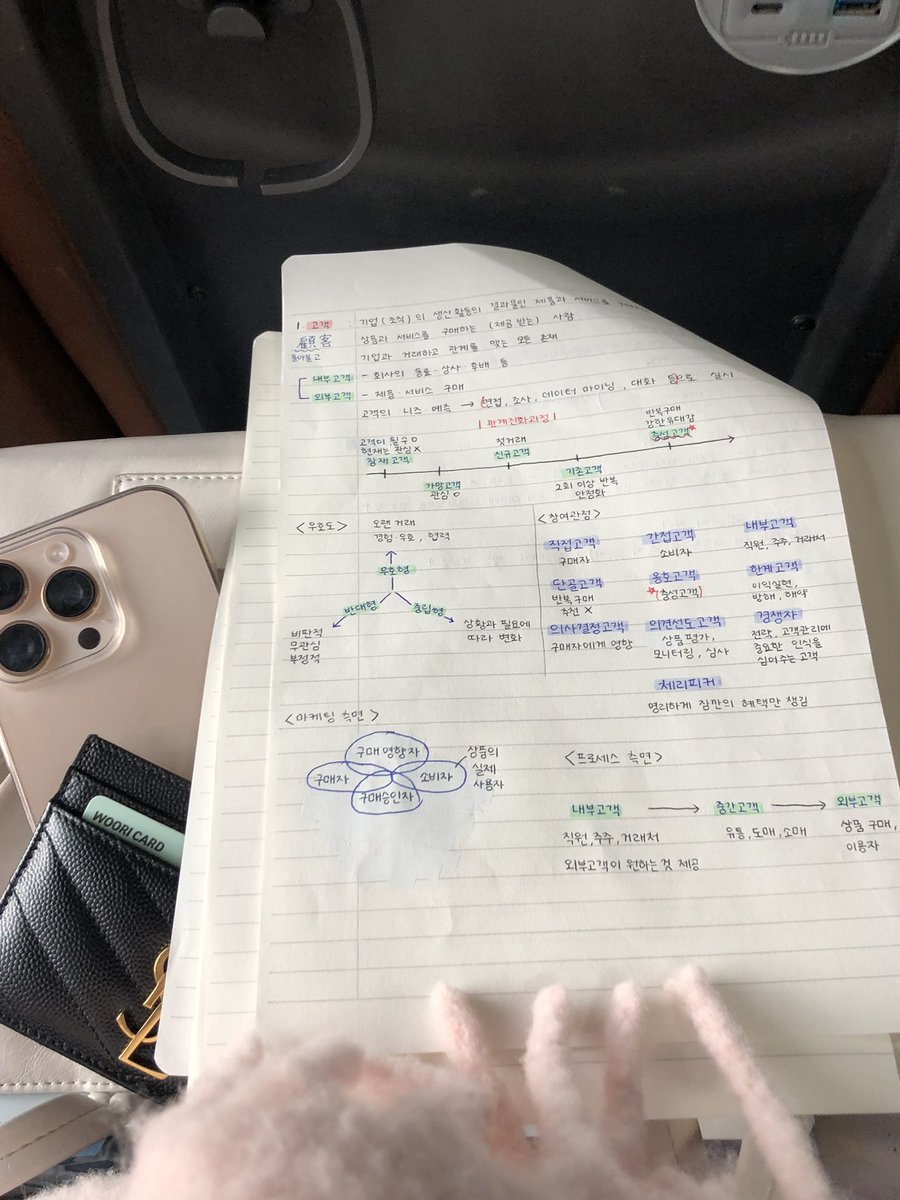 1. 고객 : 기업(조직)의 생산활동의 결과물인 제품과 서비스를
顧客 상품과 서비스를 구매하는 (제공 받는) 사람
돌아볼 고 기업과 거래하고 관계를 맺는 모든 존재
내부고객 - 회사의 동료·상사·후배 등
외부고객 - 제품·서비스 구매
고객의 니즈·예측 → 면접, 조사, 데이터 마이닝, 대화 등으로 실시
| 관계진화과정 |
고객이 될수 O
현재는 관심 X
잠재고객
가망고객
관심 O
첫거래
신규고객
기존고객
2회 이상 반복
안정화
반복구매
강한유대감
충성고객*
<우호도>
오랜 거래
경험·우호, 협력
우호형
반대형
중립형
비판적
무관심
부정적
상황과 필요에
따라 변화
<참여관점>
직접고객
구매자
간접고객
소비자
내부고객
직원, 주주, 거래처
단골고객
반복구매
추천 X
옹호고객
*(충성고객)
한계고객
이익실현,
방해, 해약
의사결정고객
구매자에게 영향
의견선도고객
상품평가,
모니터링, 심사
경쟁자
전략, 고객관리에
중요한 인식을
심어주는 고객
체리피커
영리하게 잠깐의 혜택만 챙김
<마케팅 측면>
구매 영향자
구매자
소비자
구매승인자
상품의
실제
사용자
<프로세스 측면>
내부고객 → 중간고객 → 외부고객
직원, 주주, 거래처
외부고객이 원하는 것 제공
유통, 도매, 소매
상품 구매,
이용자
WOORI CARD